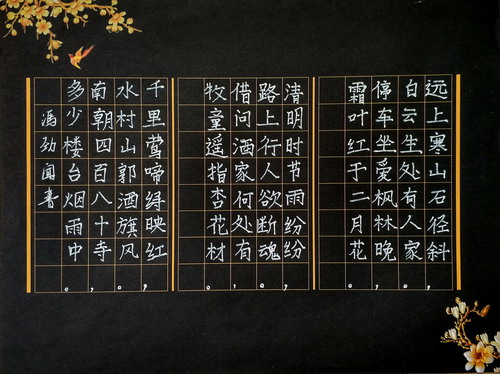 远上寒山石径斜，
白云生处有人家。
停车坐爱枫林晚，
霜叶红于二月花。
清明时节雨纷纷，
路上行人欲断魂。
借问酒家何处有，
牧童遥指杏花村。
千里莺啼绿映红，
水村山郭酒旗风。
南朝四百八十寺，
多少楼台烟雨中。
冯劲闻书